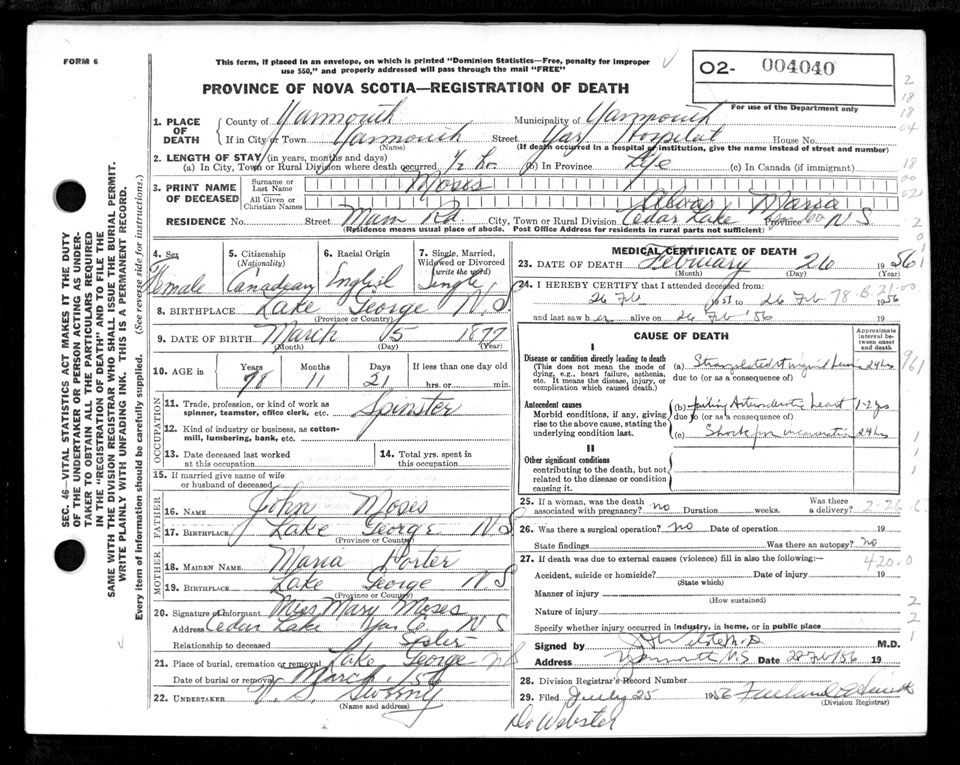 FORM 6
This form, if placed in an envelope, on which is printed "Dominion Statistics—Free, penalty for improper
use $50," and properly addressed will pass through the mail "FREE"
02- 004040
For use of the Department only
PROVINCE OF NOVA SCOTIA—REGISTRATION OF DEATH
SEC. 46—VITAL STATISTICS ACT MAKES IT THE DUTY
OF THE UNDERTAKER OR PERSON ACTING AS UNDER-
TAKER TO OBTAIN ALL THE PARTICULARS REQUIRED
IN THE "REGISTRATION OF DEATH" AND TO FILE THE
SAME WITH THE DIVISION REGISTRAR WHO SHALL ISSUE THE BURIAL PERMIT.
WRITE PLAINLY WITH UNFADING INK. THIS IS A PERMANENT RECORD.
Every item of information should be carefully supplied. (See reverse side for instructions.)
1. PLACE OF DEATH
County of Yarmouth Municipality of Yarmouth
If in City or Town Yarmouth Street Yar Hospital House No.
(Name) (If death occurred in a hospital or institution, give the name instead of street and number)
2. LENGTH OF STAY (in years, months and days)
(a) In City, Town or Rural Division where death occurred ½ hr. (b) In Province Life (c) In Canada (if immigrant)
3. PRINT NAME OF DECEASED
Surname or Last Name Moses
All Given or Christian Names Maria
RESIDENCE No. Street Main Rd. City, Town or Rural Division Cedar Lake Province N S
(Residence means usual place of abode. Post Office Address for residents in rural parts not sufficient)
4. Sex Female
5. Citizenship (Nationality) Canadian
6. Racial Origin English
7. Single, Married, Widowed or Divorced (write the word) Single
8. BIRTHPLACE Lake George N.S
(Province or Country)
9. DATE OF BIRTH March 15 1877
(Month) (Day) (Year)
10. AGE in Years Months Days If less than one day old
78 11 21 hrs. or min.
OCCUPATION
11. Trade, profession, or kind of work as
spinner, teamster, office clerk, etc. Spinster
12. Kind of industry or business, as cotton-
mill, lumbering, bank, etc.
13. Date deceased last worked
at this occupation
14. Total yrs. spent in
this occupation
15. If married give name of wife
or husband of deceased
FATHER
16. NAME John Moses
17. BIRTHPLACE Lake George N S
(Province or Country)
MOTHER
18. MAIDEN NAME Maria Porter
19. BIRTHPLACE Lake George N S
(Province or Country)
20. Signature of informant Miss Mary Moses
Address Cedar Lake Yar Co. N S
Relationship to deceased Sister
21. Place of burial, cremation or removal Lake George NS
Date of burial or removal March 1/56
22. UNDERTAKER Sweeny
(Name and address)
MEDICAL CERTIFICATE OF DEATH
23. DATE OF DEATH February 26 1956
(Month) (Day) (Year)
24. I HEREBY CERTIFY that I attended deceased from:
26 Feb 1956 to 26 Feb 1956
78.B.21-00
and last saw her alive on 26 Feb '56 19
CAUSE OF DEATH
Approximate interval between onset and death
I
Disease or condition directly leading to death
(This does not mean the mode of
dying, e.g., heart failure, asthenia,
etc. It means the disease, injury, or
complication which caused death.)
(a) Strangulated inguinal hernia 24 hrs
due to (or as a consequence of)
961
Antecedent causes
Morbid conditions, if any, giving
rise to the above cause, stating the
underlying condition last.
(b) failing heart 1-2 yrs
due to (or as a consequence of)
(c) Shock 24 hrs
II
Other significant conditions
contributing to the death, but not
related to the disease or condition
causing it.
25. If a woman, was the death
associated with pregnancy? no Duration weeks. Was there a delivery?
2-26-
26. Was there a surgical operation? no Date of operation 19
State findings Was there an autopsy? no
27. If death was due to external causes (violence) fill in also the following:—
420.0
Accident, suicide or homicide? Date of injury 19
(State which)
Manner of injury
(How sustained)
Nature of injury
Specify whether injury occurred in industry, in home, or in public place
Signed by M.D.
Address Yarmouth NS Date 28 Feb/56 19
28. Division Registrar's Record Number
29. Filed July 25 1956
(Division Registrar)
Dr Webster